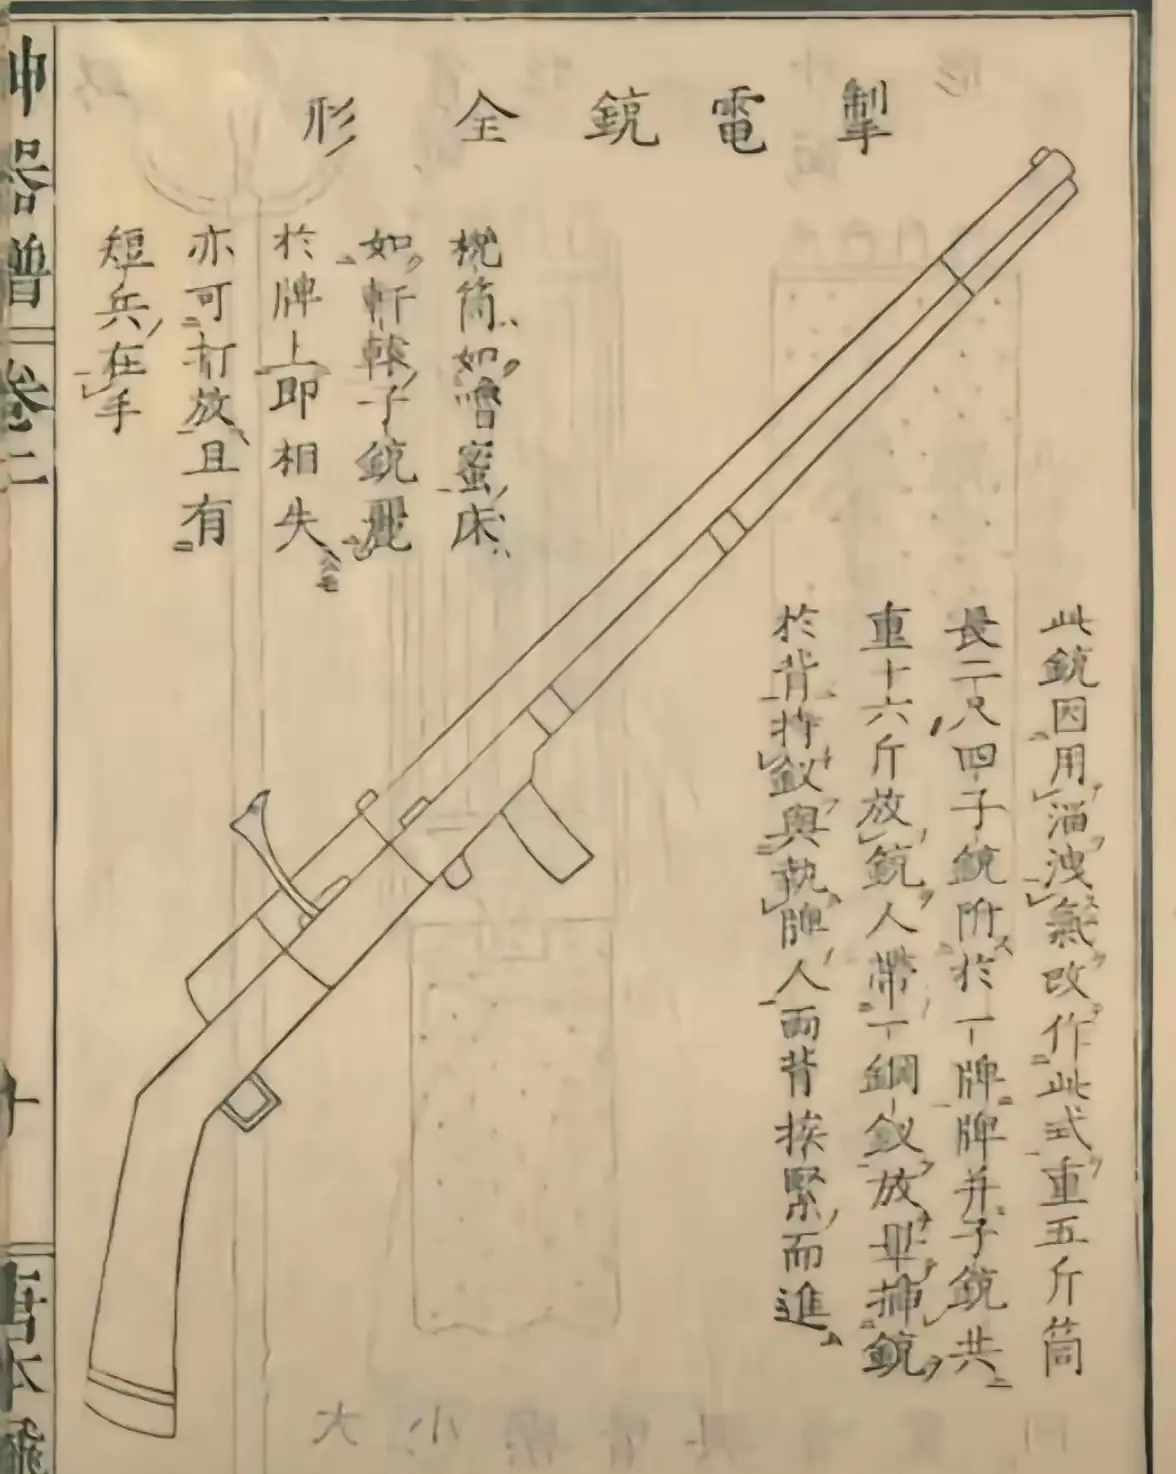 掣電銃全形
此銃因用淄洩氣改作此式重五斤筒
長二尺四子銃附於一牌牌并子銃共
重十六斤放銃人帶一鋼釵放畢揷銃
於背持釵與執牌人兩背挨緊而進
梘筒如嚕蜜床
如軒轅子銃置
於牌上即相失
亦可打放且有
短兵在手
神器譜
卷二
十